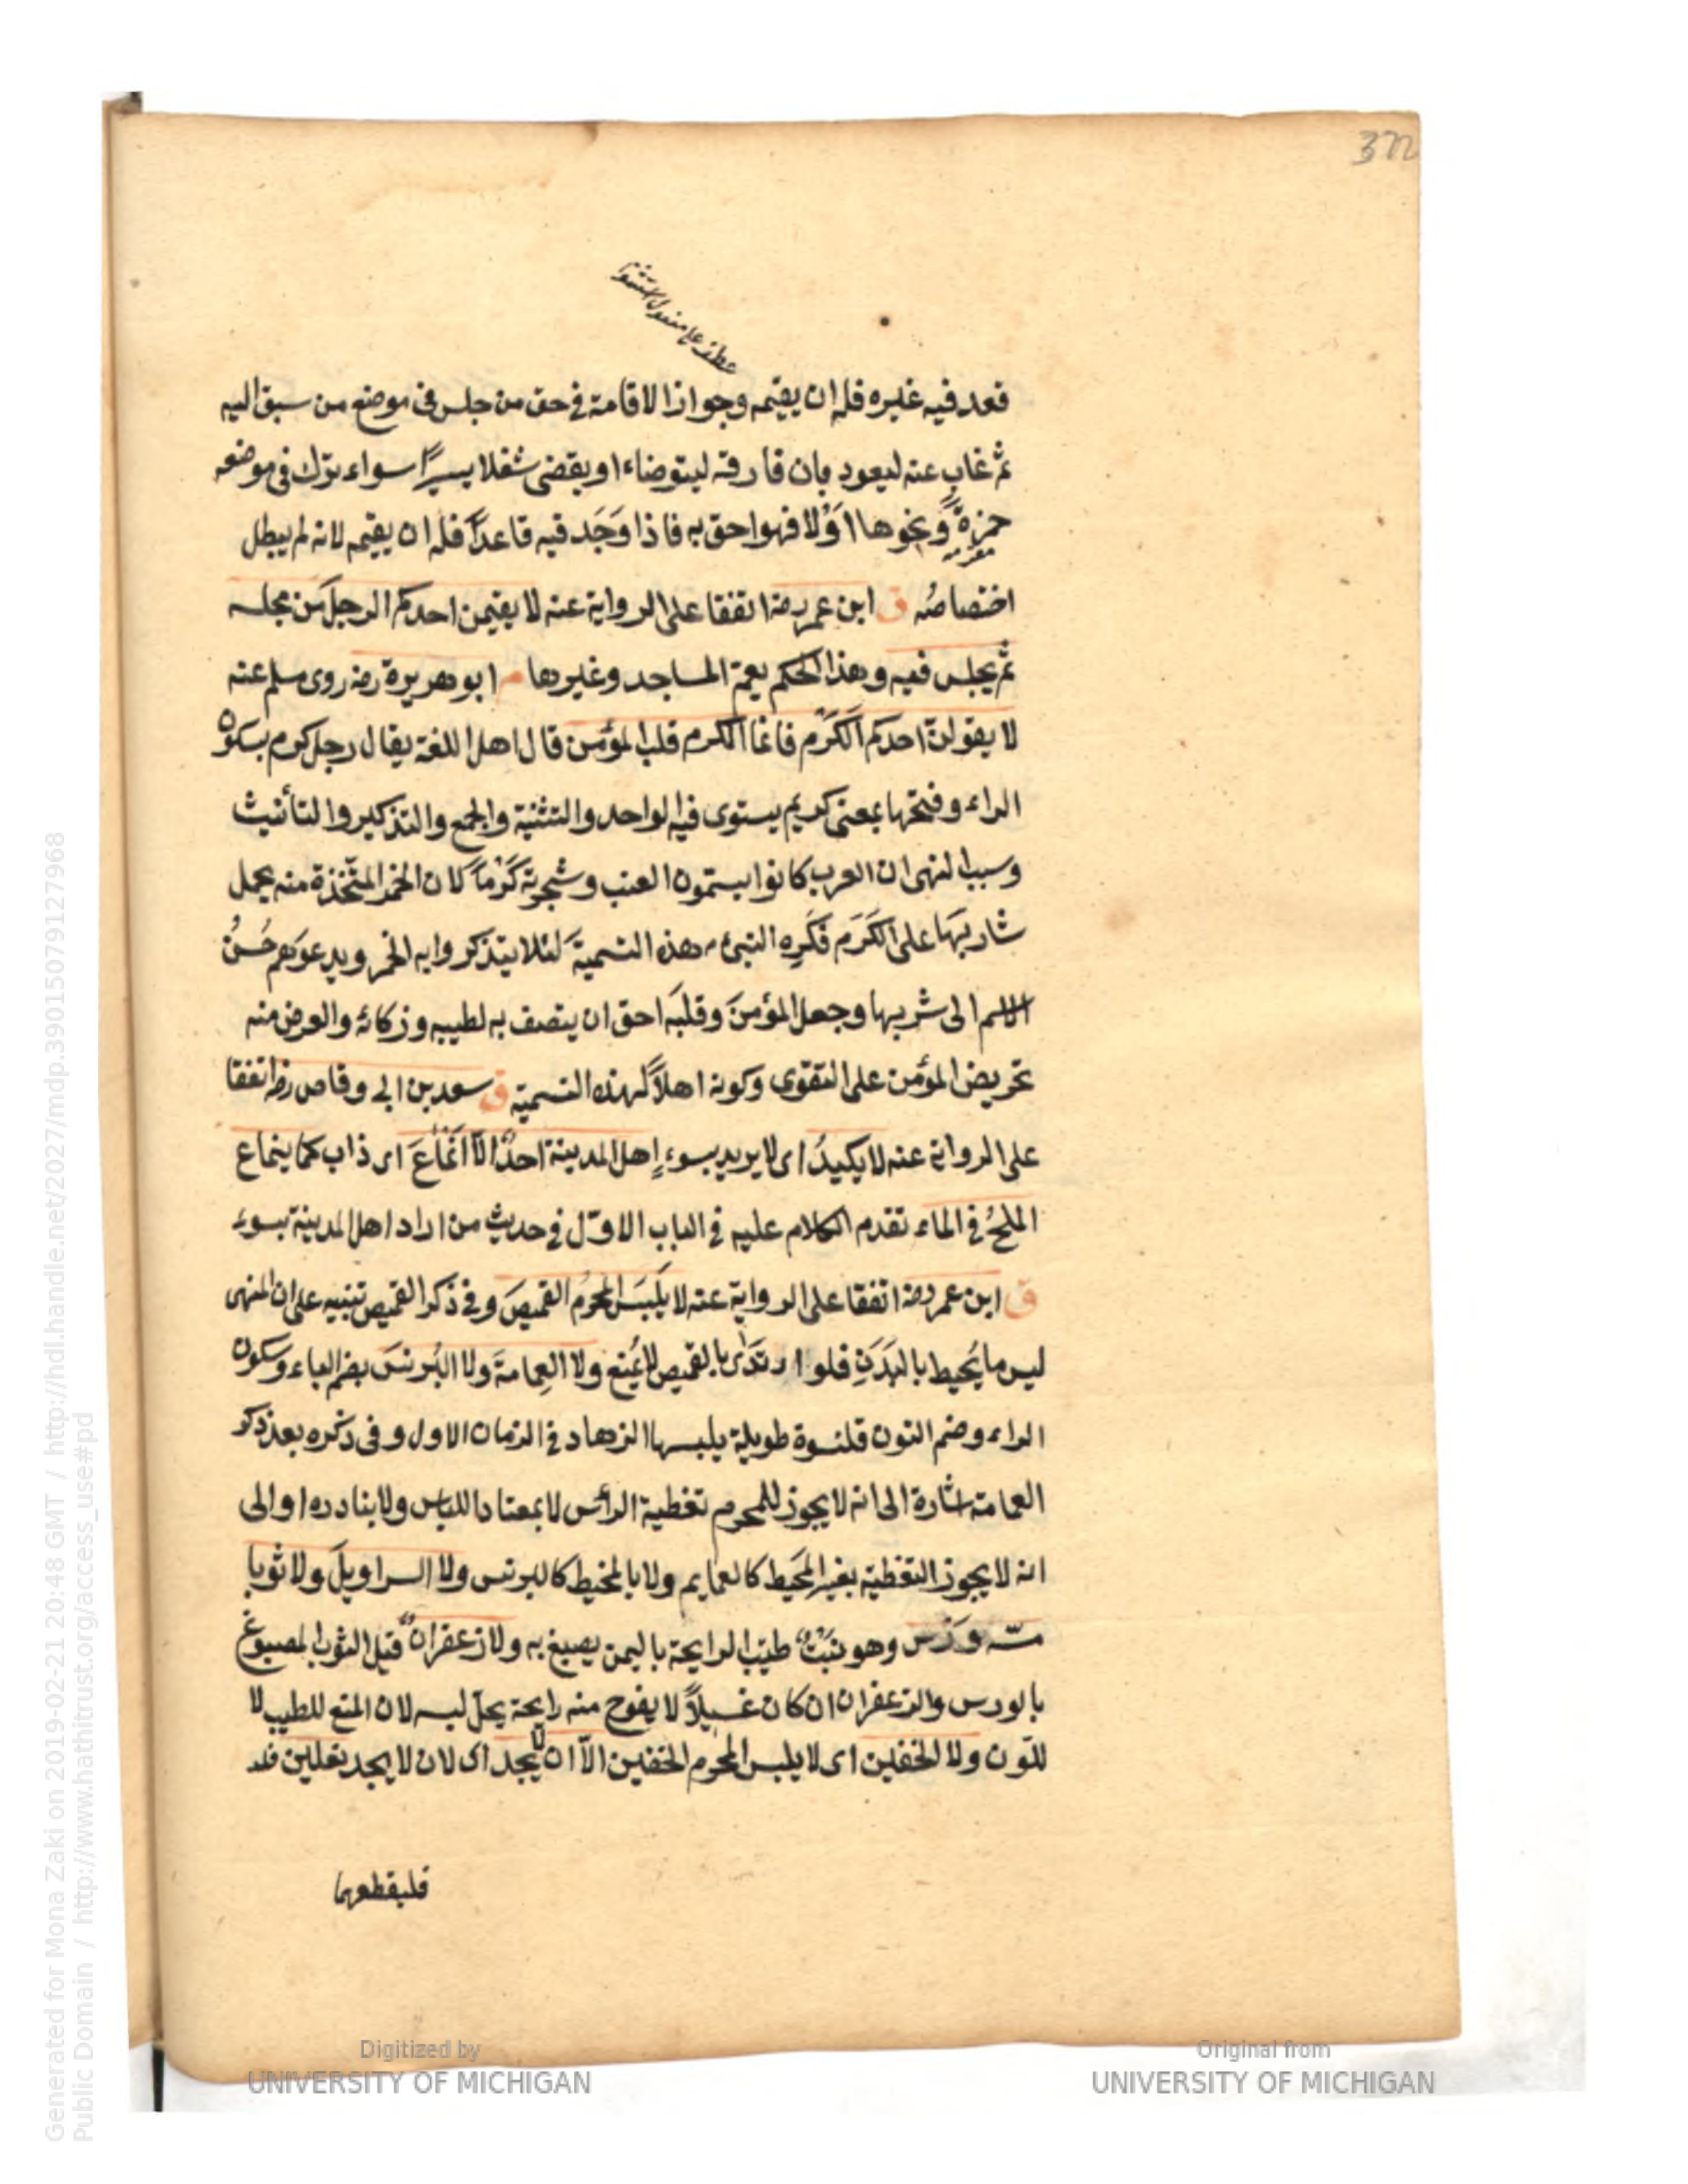 372
قعد فيه غيره فله ان يقيمه وجواز الاقامة فى حق من جلس فى موضع من سبق اليه
ثم غاب عنه ليعود بان فارقه ليتوضاء او يقضى شغلا يسيرًا سواء ترك فى موضعه
ونحوها اَوْلا فهو احق به فاذا وَجَد فيه قاعدًا فله ان يقيمه لانه لم يبطل
اختصاصُه ق ابن عمر رضه اتفقا على الرواية عنه لا يقيمن احدكم الرجل من مجلسه
ثم يجلس فيه وهذا الحكم يعمّ المساجد وغيرها م ابو هريرة رضه روى مسلم عنه
لا يقولنّ احدكم الكَرْم فانما الكرم قلب المؤمن قال اهل اللغة يقال رجل كرم بسكون
الراء وفتحها بمعنى كريم يستوى فيه الواحد والتثنية والجمع والتذكير والتأنيث
وسبب النهى ان العرب كانوا يسمّون العنب وشجرته كَرْمًا لان الخمر المتّخذة منه يحمل
شاربَها على الكَرَم فكَرِه النبىء م هذه التسمية لئلا يتذكروا به الخمر ويدعوَهم حُسْنُ
الاسم الى شربها وجعل المؤمنَ وقلبَه احق ان يتصف به لطيبه وزكائه والغرض منه
تحريض المؤمن على التقوى وكونه اهلاً لهذه التسمية ق سعد بن ابى وقاص رضه اتفقا
على الرواية عنه لا يكيدُ اى لا يريد بسوء اهل المدينة احدٌ الاّ انْماعَ اى ذاب كما ينماع
الملحُ فى الماء تقدم الكلام عليه فى الباب الاوّل فى حديث من اراد اهل المدينة بسوء
ق ابن عمر رضه اتفقا على الرواية عنه لا يَلْبَسَ المحرُم القميصَ وفى ذكر القميص تنبيه على ان المنهى
ليس ما يُحيط بالبَدَنِ فلو ارتدَى بالقميص لا يُمنع ولا العِمامةَ ولا البُرنسَ بضم الباء وسكون
الراء وضم النون قلنسوة طويلة يلبسها الزهاد فى الزمان الاول وفى ذكره بعد ذكر
العمامة اشارة الى انه لا يجوز للمحرم تغطية الرأس لا بمعتاد اللباس ولا بنادره او الى
انه لا يجوز التغطية بغير المَخيط كالعمايم ولا بالمخيط كالبرنس ولا السراويلَ ولا ثوبا
مسّه وَرْس وهو نَبْتٌ طيّب الرايحة باليمن يصبغ به ولا زعفرانٌ قيل الثوب المصبوغ
بالورس والزعفران ان كان غسيلاً لا يفوح منه رايحة يحلّ لبسه لان المنع للطيب لا
للّون ولا الخفين اى لا يلبس المحرم الخفين الاّ ان لا يجد اى لان لا يجد نعلين فلـ
فليقطعهما
Digitized by
UNIVERSITY OF MICHIGAN
Original from
UNIVERSITY OF MICHIGAN
Generated for Mona Zaki on 2019-02-21 20:48 GMT / http://hdl.handle.net/2027/mdp.39015079127968
Public Domain / http://www.hathitrust.org/access_use#pd